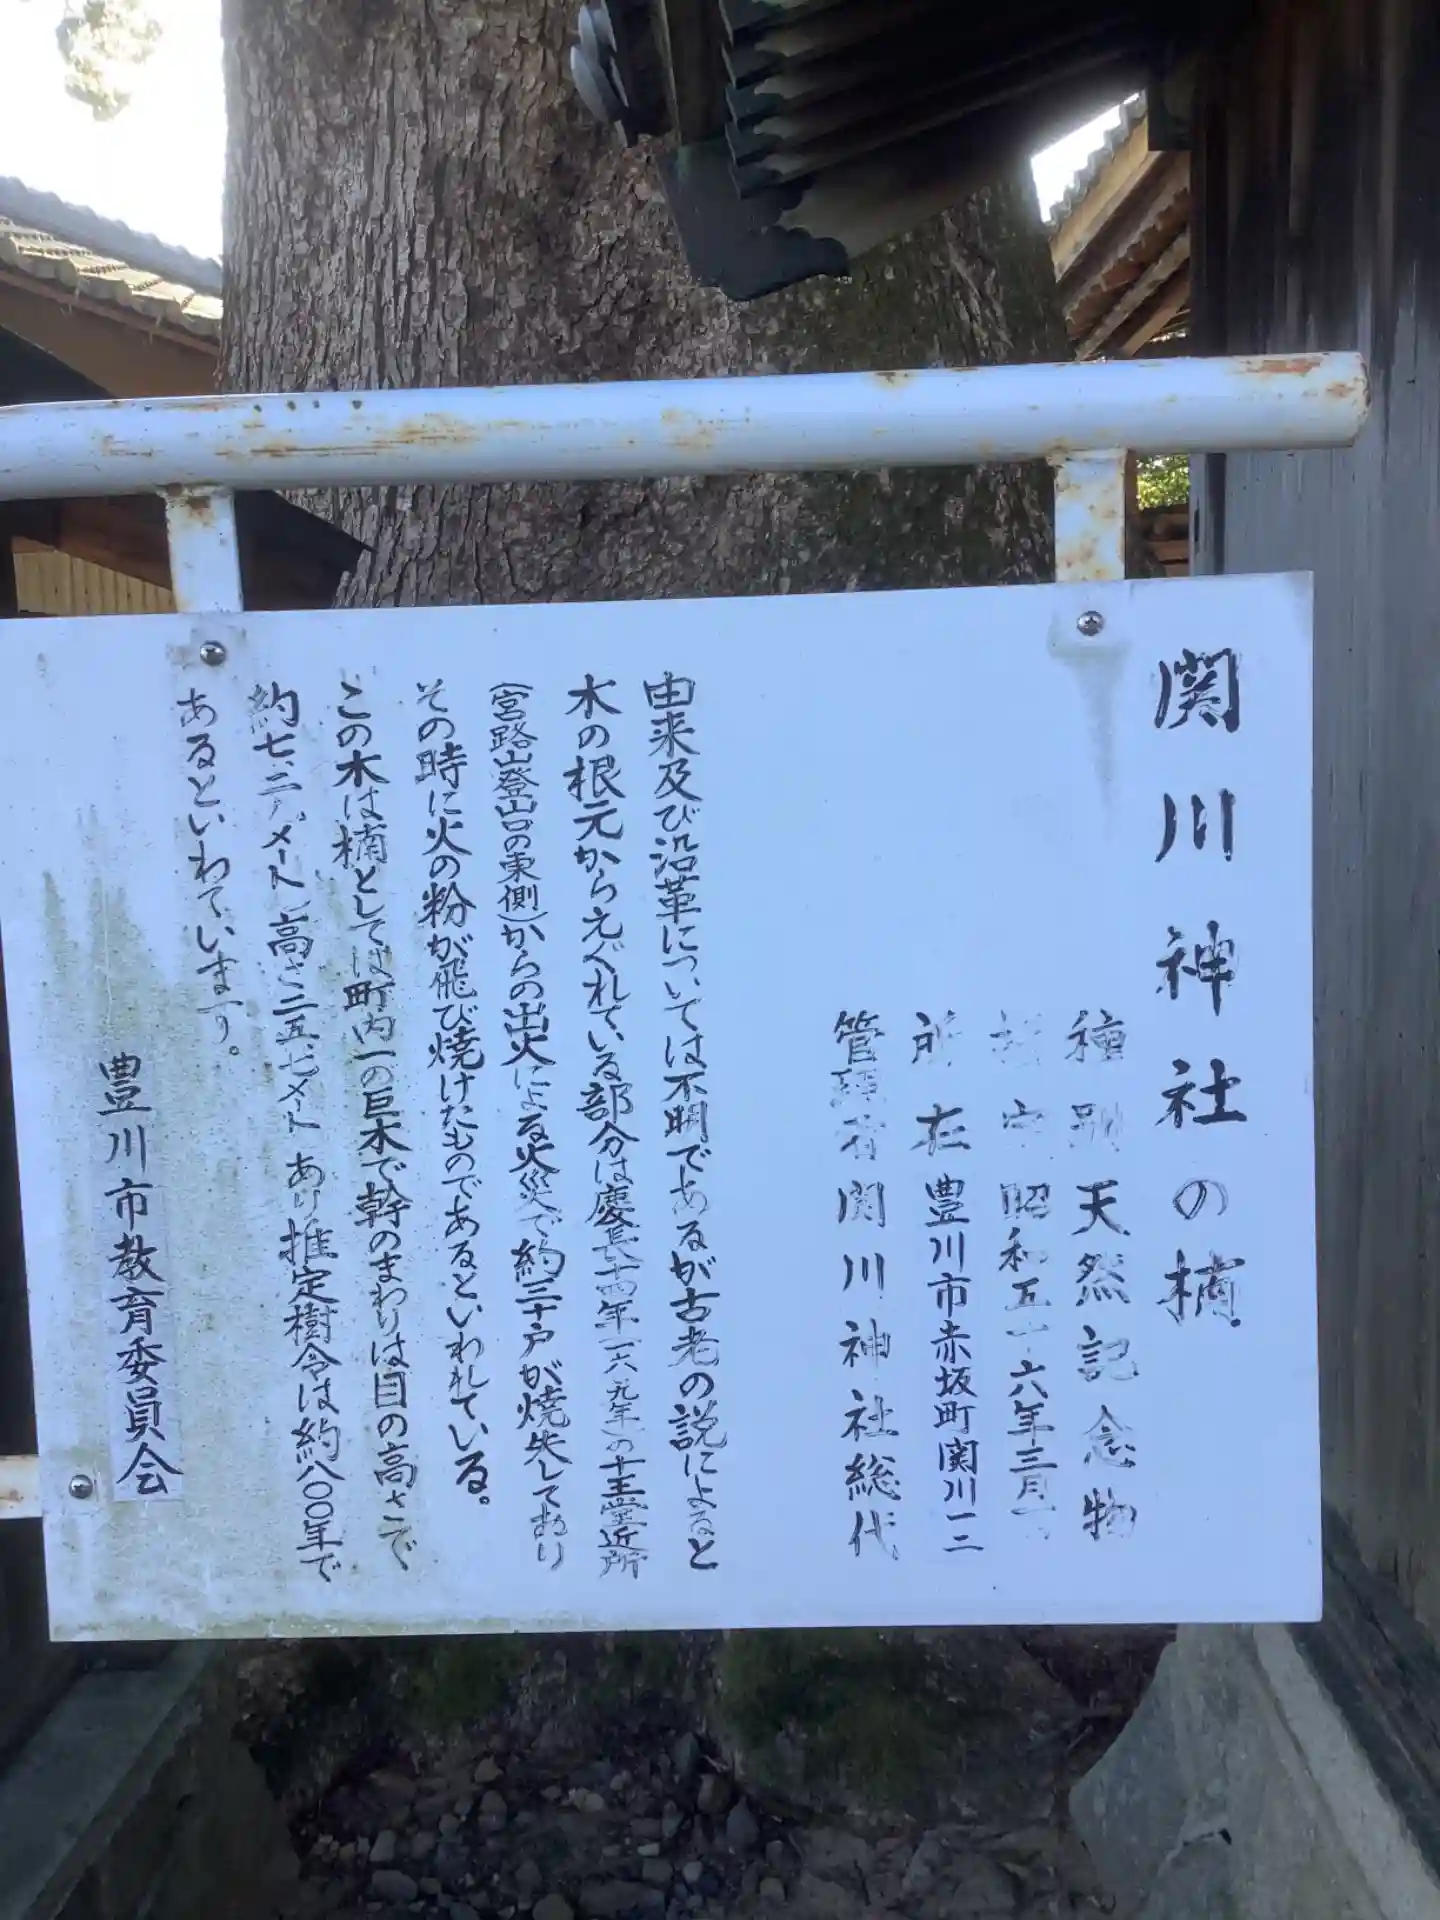 関川神社の楠
種別 天然記念物
指定 昭和五十六年三月
所在 豊川市赤坂町関川一二
管理者 関川神社総代
由来及び沿革については不明であるが古老の説によると
木の根元からえぐれている部分は慶長十四年(一六〇九年)の十王堂近所
(宮路山登山口の東側)からの出火による火災で約三十戸が焼失しており
その時に火の粉が飛び焼けたものであるといわれている。
この木は楠としては町内一の巨木で幹のまわりは目の高さで
約七.二 メートル 高さ二五.七メートル あり推定樹令は約八〇〇年で
あるといわています。
豊川市教育委員会